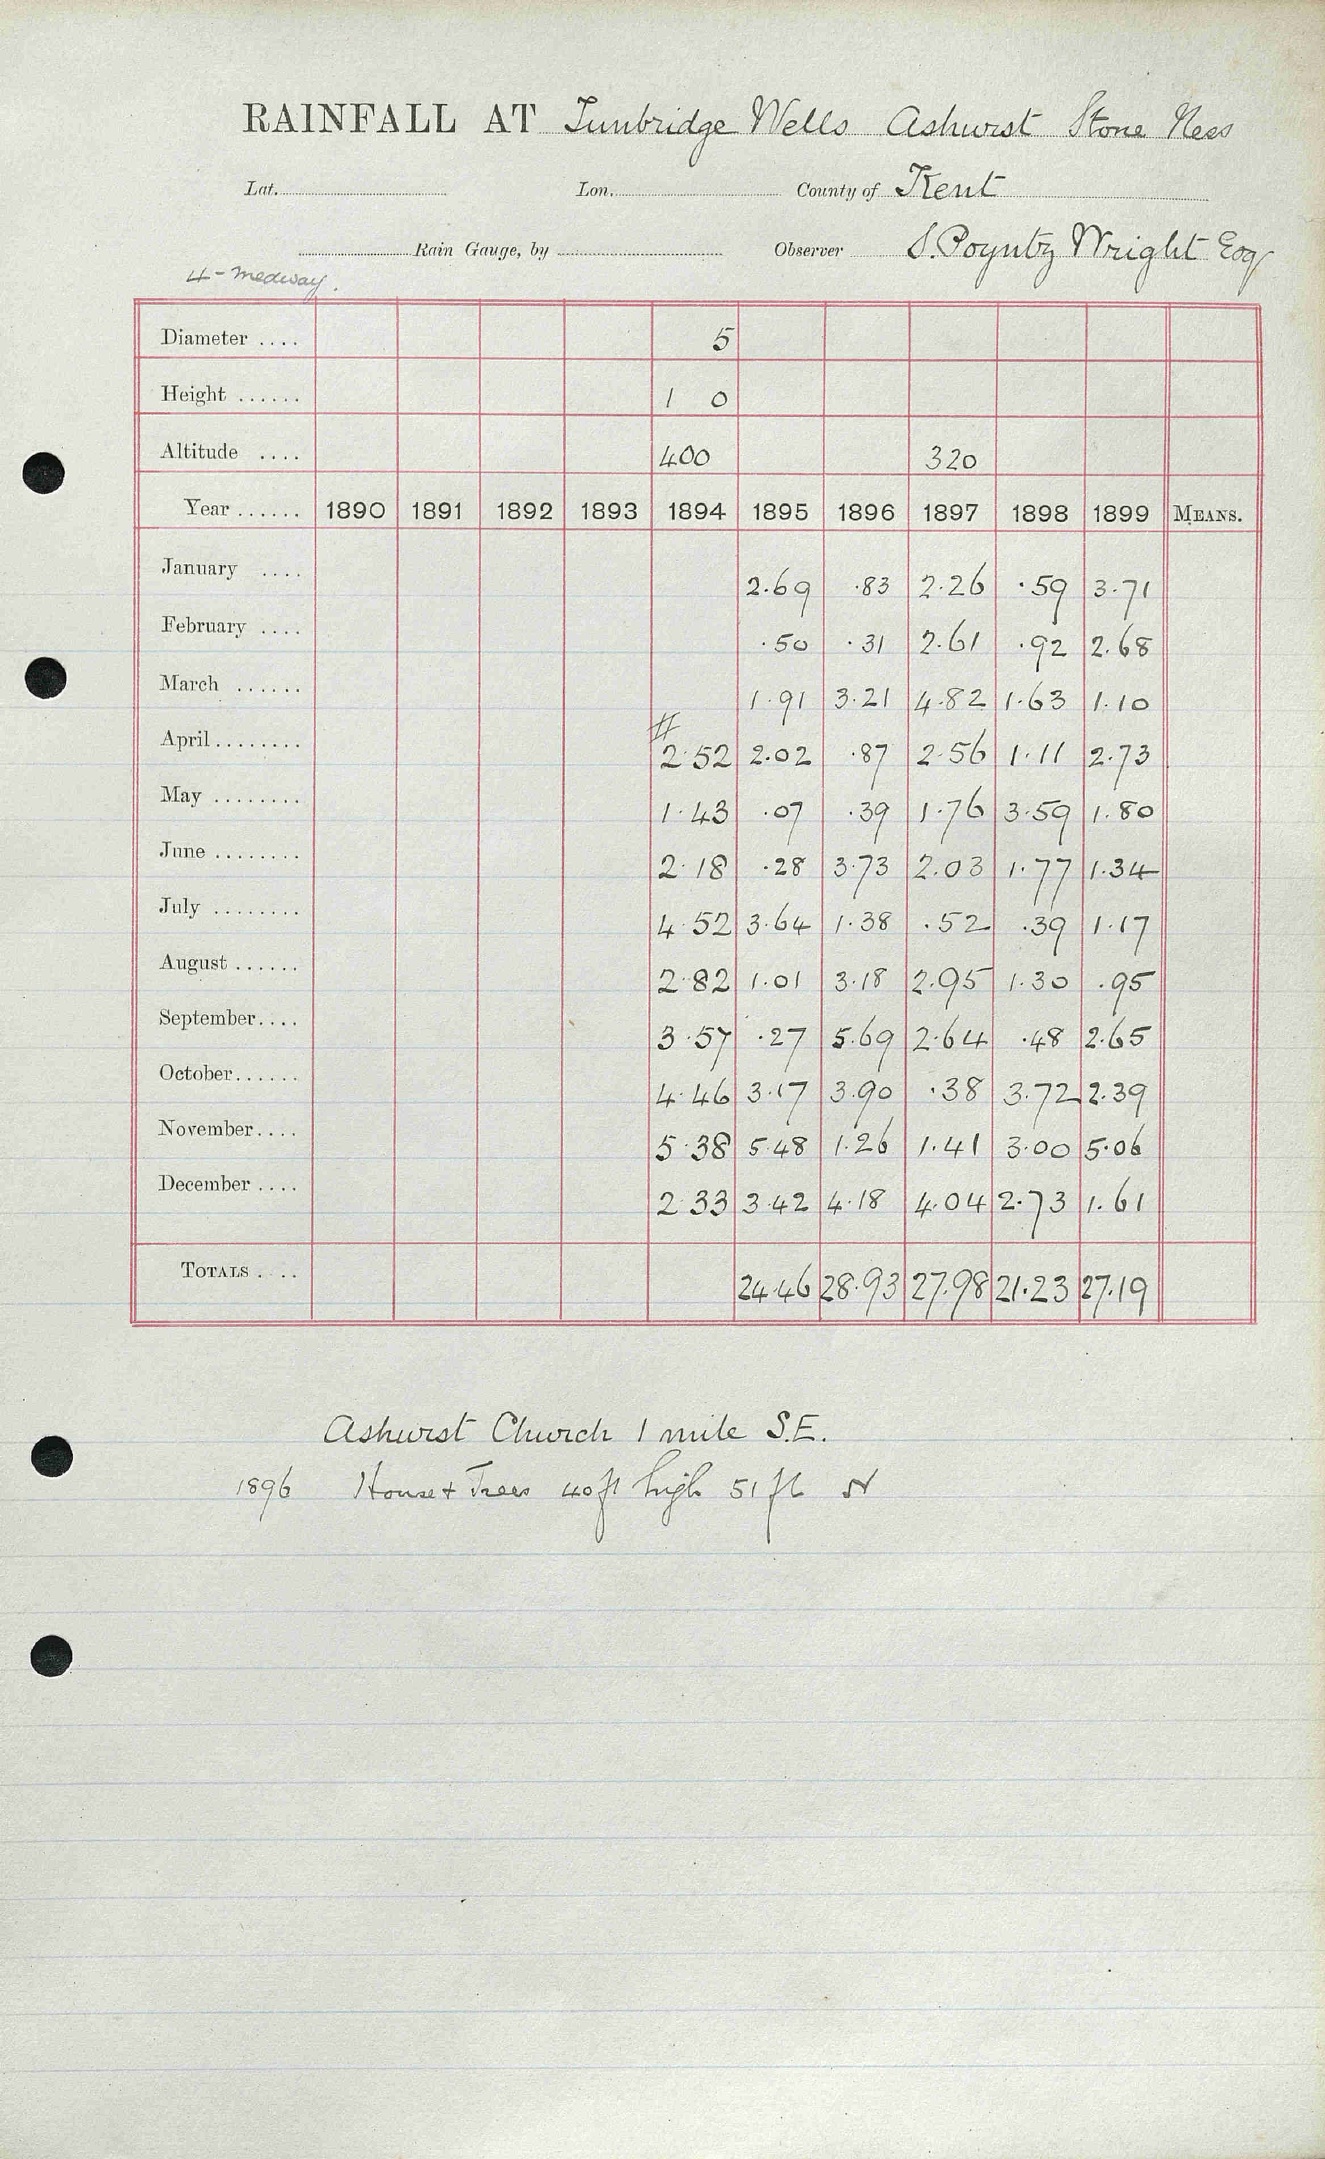 RAINFALL AT Tunbridge Wells Ashurst Stone Ness
Lat. Lon. County of Kent
Rain Gauge, by Observer S. Poyntz Wright Esq
4 - Medway.
Diameter .... 5
Height ...... 1 0
Altitude .... 400 320
Year ...... 1890 1891 1892 1893 1894 1895 1896 1897 1898 1899 MEANS.
January .... 2.69 .83 2.26 .59 3.71
February .... .50 .31 2.61 .92 2.68
March ...... 1.91 3.21 4.82 1.63 1.10
#
April ........ 2.52 2.02 .87 2.56 1.11 2.73
May ........ 1.43 .07 .39 1.76 3.59 1.80
June ........ 2.18 .28 3.73 2.03 1.77 1.34
July ........ 4.52 3.64 1.38 .52 .39 1.17
August ...... 2.82 1.01 3.18 2.95 1.30 .95
September.... 3.57 .27 5.69 2.64 .48 2.65
October...... 4.46 3.17 3.90 .38 3.72 2.39
November.... 5.38 5.48 1.26 1.41 3.00 5.06
December .... 2.33 3.42 4.18 4.04 2.73 1.61
TOTALS .... 24.46 28.93 27.98 21.23 27.19
Ashurst Church 1 mile S.E.
1896 House + Trees 40 ft high 51 ft N